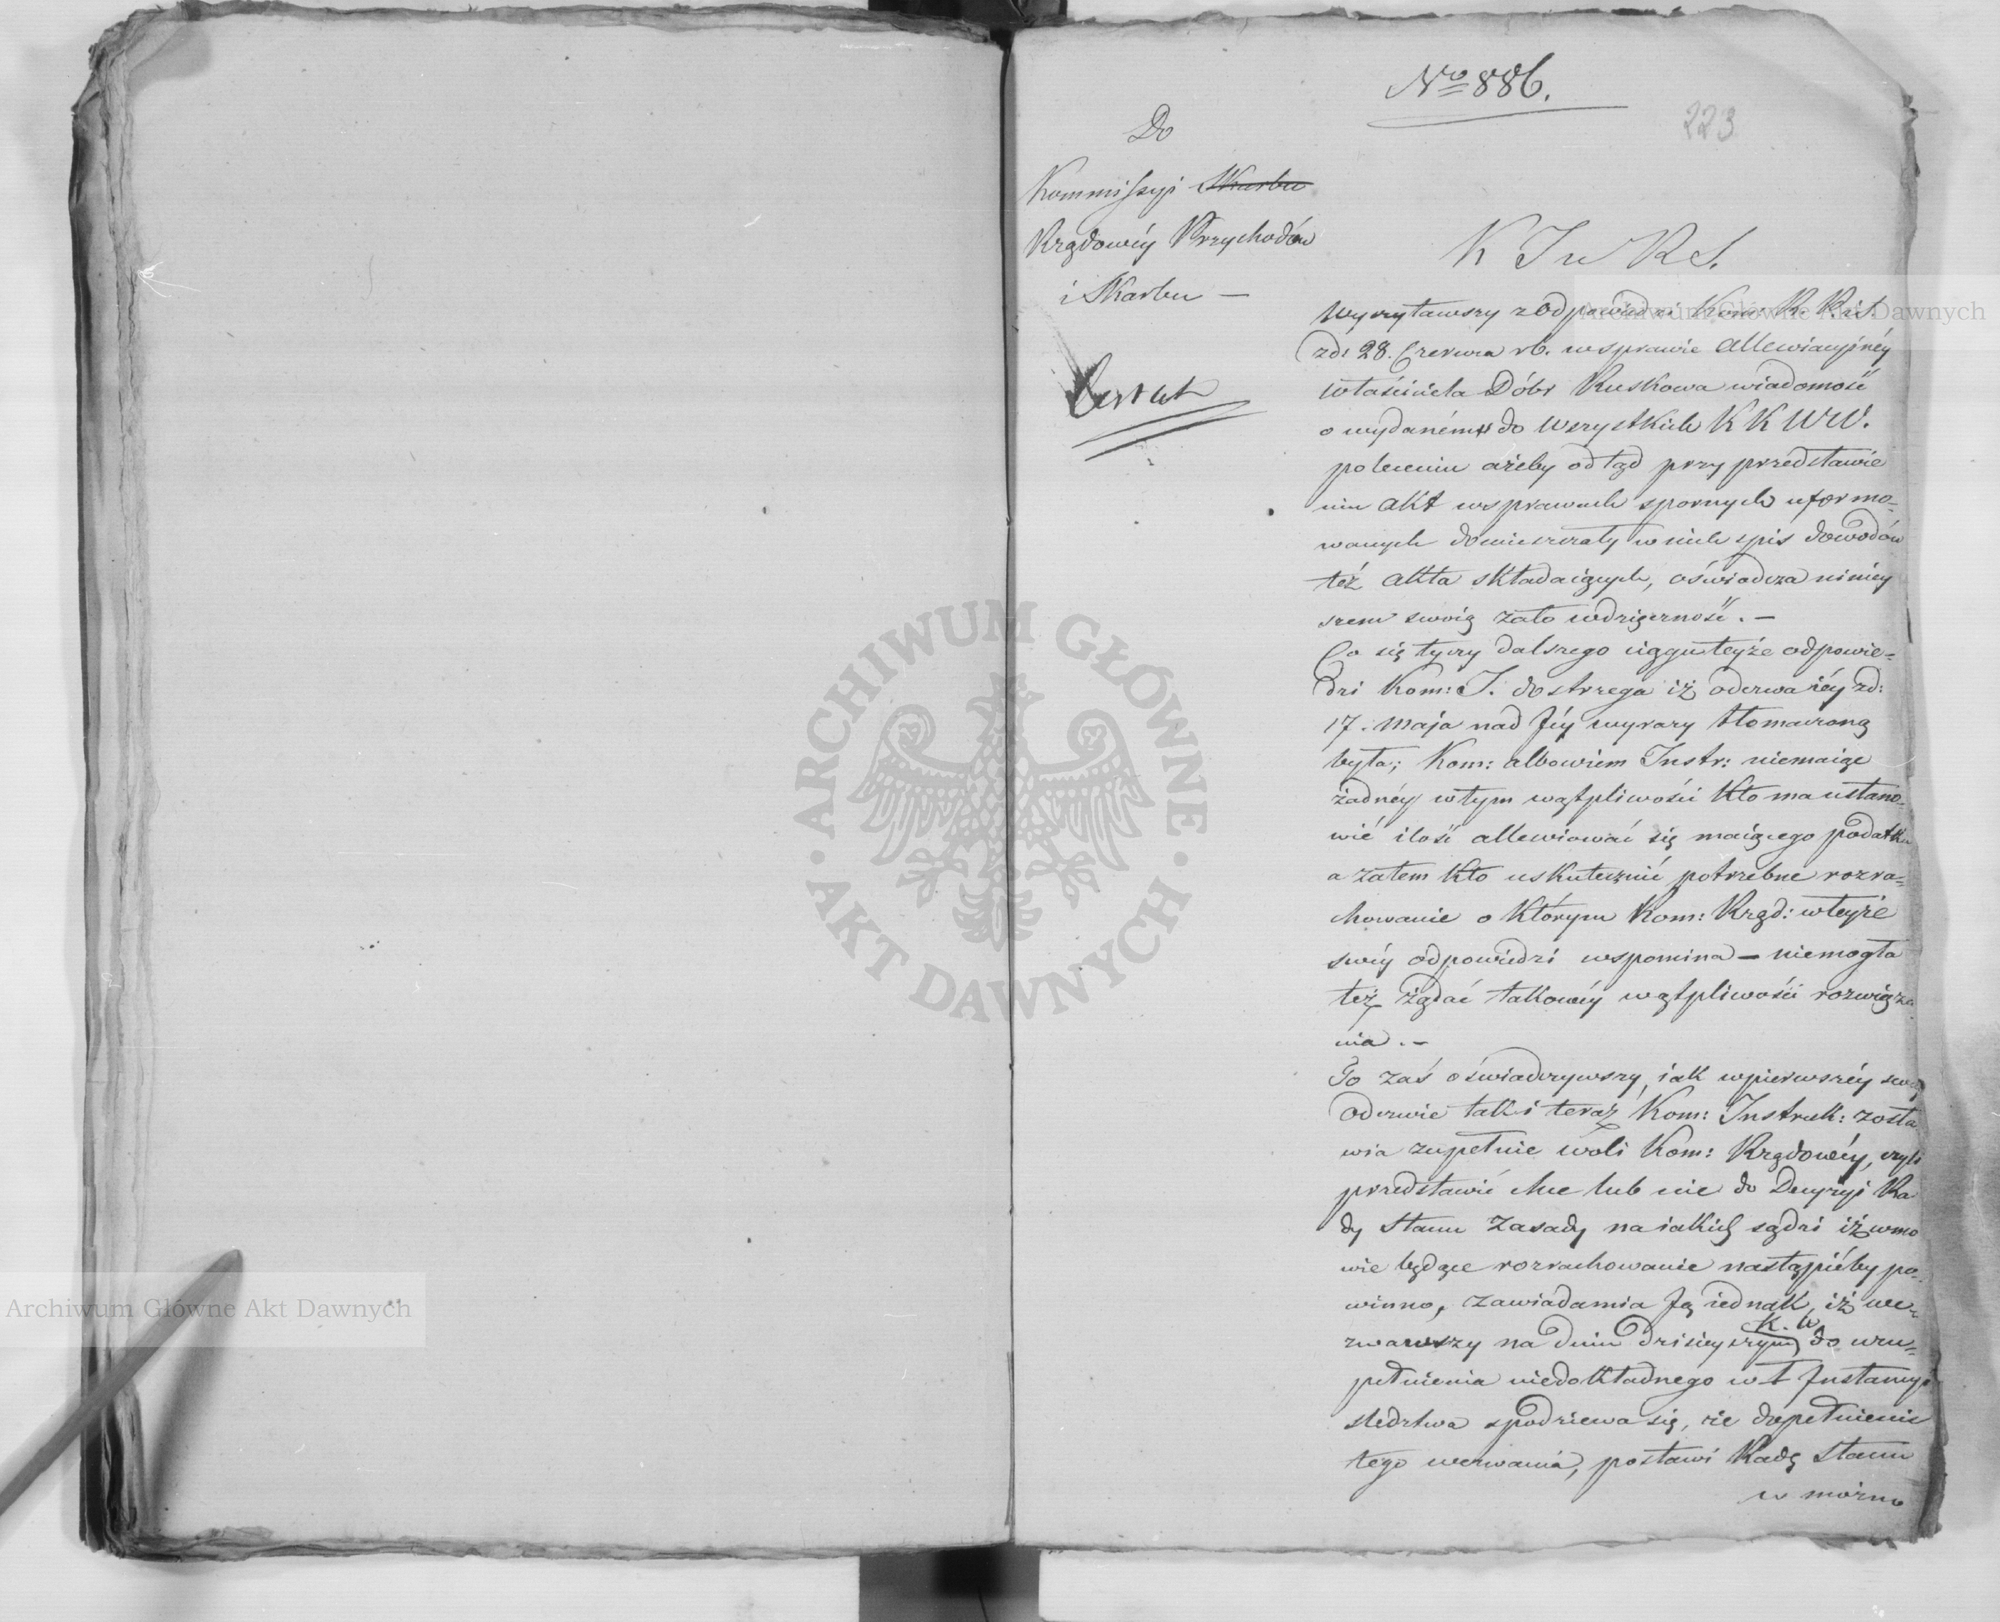 No 886.
223
Do
Kommissyi Skarbu
Rządowéy Przychodów
i Skarbu —
K I n R S.
Wyczytawszy z Odpowiedzi Kom: R. P. i S.
zd: 28. Czerwca rb. w sprawie allewiacyinéy
właściciela Dóbr Ruskowa wiadomość
o wydaném do wszystkich K K WW.
poleceniu ażeby odtąd przy przedstawie
niu akt w sprawach spornych uformo-
wanych domieszczały w nich spis dowodów
też akta składaiących, oświadcza niniey
szem swoią zato wdzięczność. —
Co się tyczy dalszego ciągu teyże odpowie-
dzi Kom: I. dostrzega iż odezwa iéy zd:
17. Maja nad Jéy wyrazy tłomaczoną
była; Kom: albowiem Instr: niemaiąc
żadnéy w tym wątpliwości kto ma ustano-
wić ilość allewiować się maiącego podatku
a zatem kto uskutecznić potrzebne rozra-
chowanie o którym Kom: Rząd: w teyże
swéy odpowiedzi wspomina — niemogła
też żądać takowéy wątpliwości rozwiąza
nia. —
To zaś oświadczywszy, iak w pierwszéy swéy
odezwie tak i teraz Kom: Instruk: zosta
wia zupełnie woli Kom: Rządowéy, czyli
przedstawić chce lub nie do Decyzyi Ra
dy Stanu zasady na iakich sądzi iż w mo
wie będące rozrachowanie nastąpićby po-
winno, zawiadamia Ją iednak, iż we-
zwawszy na dniu dzisieyszym K. W. do uzu-
pełnienia niedokładnego w I Instancyi
śledztwa spodziewa się, że dopełnienie
tego wezwania, postawi Radę Stanu
w możno
Archiwum Główne Akt Dawnych
Archiwum Główne Akt Dawnych
ARCHIWUM GŁÓWNE
AKT DAWNYCH